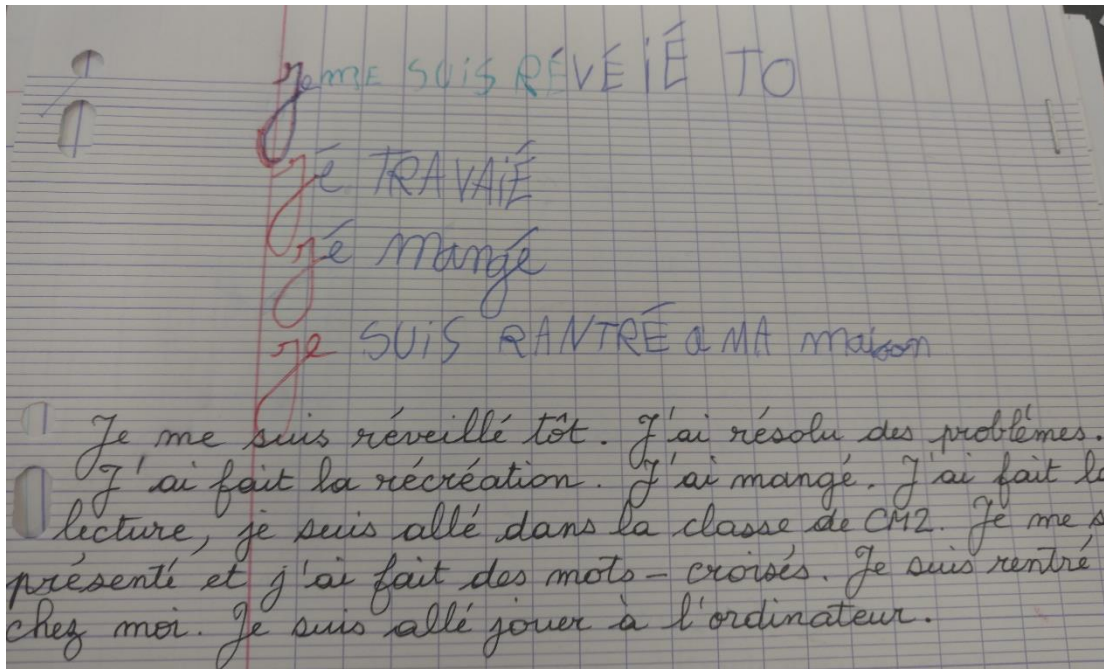 je mE SUiS RÉVÉiÉ TO
jé TRAVAiÉ
jé mangé
je SUiS RANTRÉ a MA maison
Je me suis réveillé tôt. J'ai résolu des problèmes.
J'ai fait la récréation. J'ai mangé. J'ai fait la
lecture, je suis allé dans la classe de CM2. Je me s
présenté et j'ai fait des mots-croisés. Je suis rentré
chez moi. Je suis allé jouer à l'ordinateur.